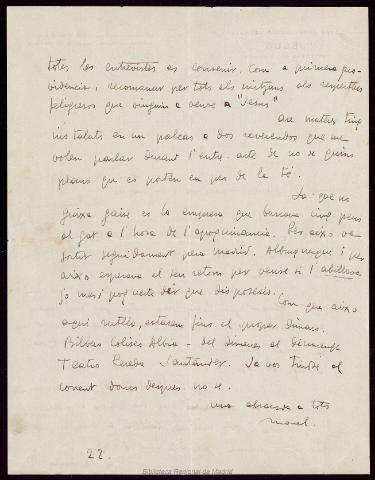 totes les entrevistes es convenir. Com a primera pro-
videncia i recomanar per tots els mitjans als respectius
peligresos que vinguin a veure a "Jesus"
Ara mateix tinc
instalats en un palcas a dos reverendos que me
volen parlar durant l'entre-acte de no se quins
plans que es porten en pro de la fé.
La que no
guixa gaire es la empresa que buscava cinq peus
al gat a l'hora de l'apoquinancia. Per aixo va
sortir seguidament per Madrid. Alburquerque i per
aixo esperava el seu retorn per veure si l'abillava
jo mes i poguesta dir que disposeis.
Com que aixo
aqui rutlla, estarem fins el proper dimars.
Bilbao Coliseo Albia - del dimecres al diumenge
Teatro Pereda Santander. Ja vos tindre al
corrent doncs despres no se.
una abraçada a tots
Morel.
22.
Biblioteca Regional de Madrid